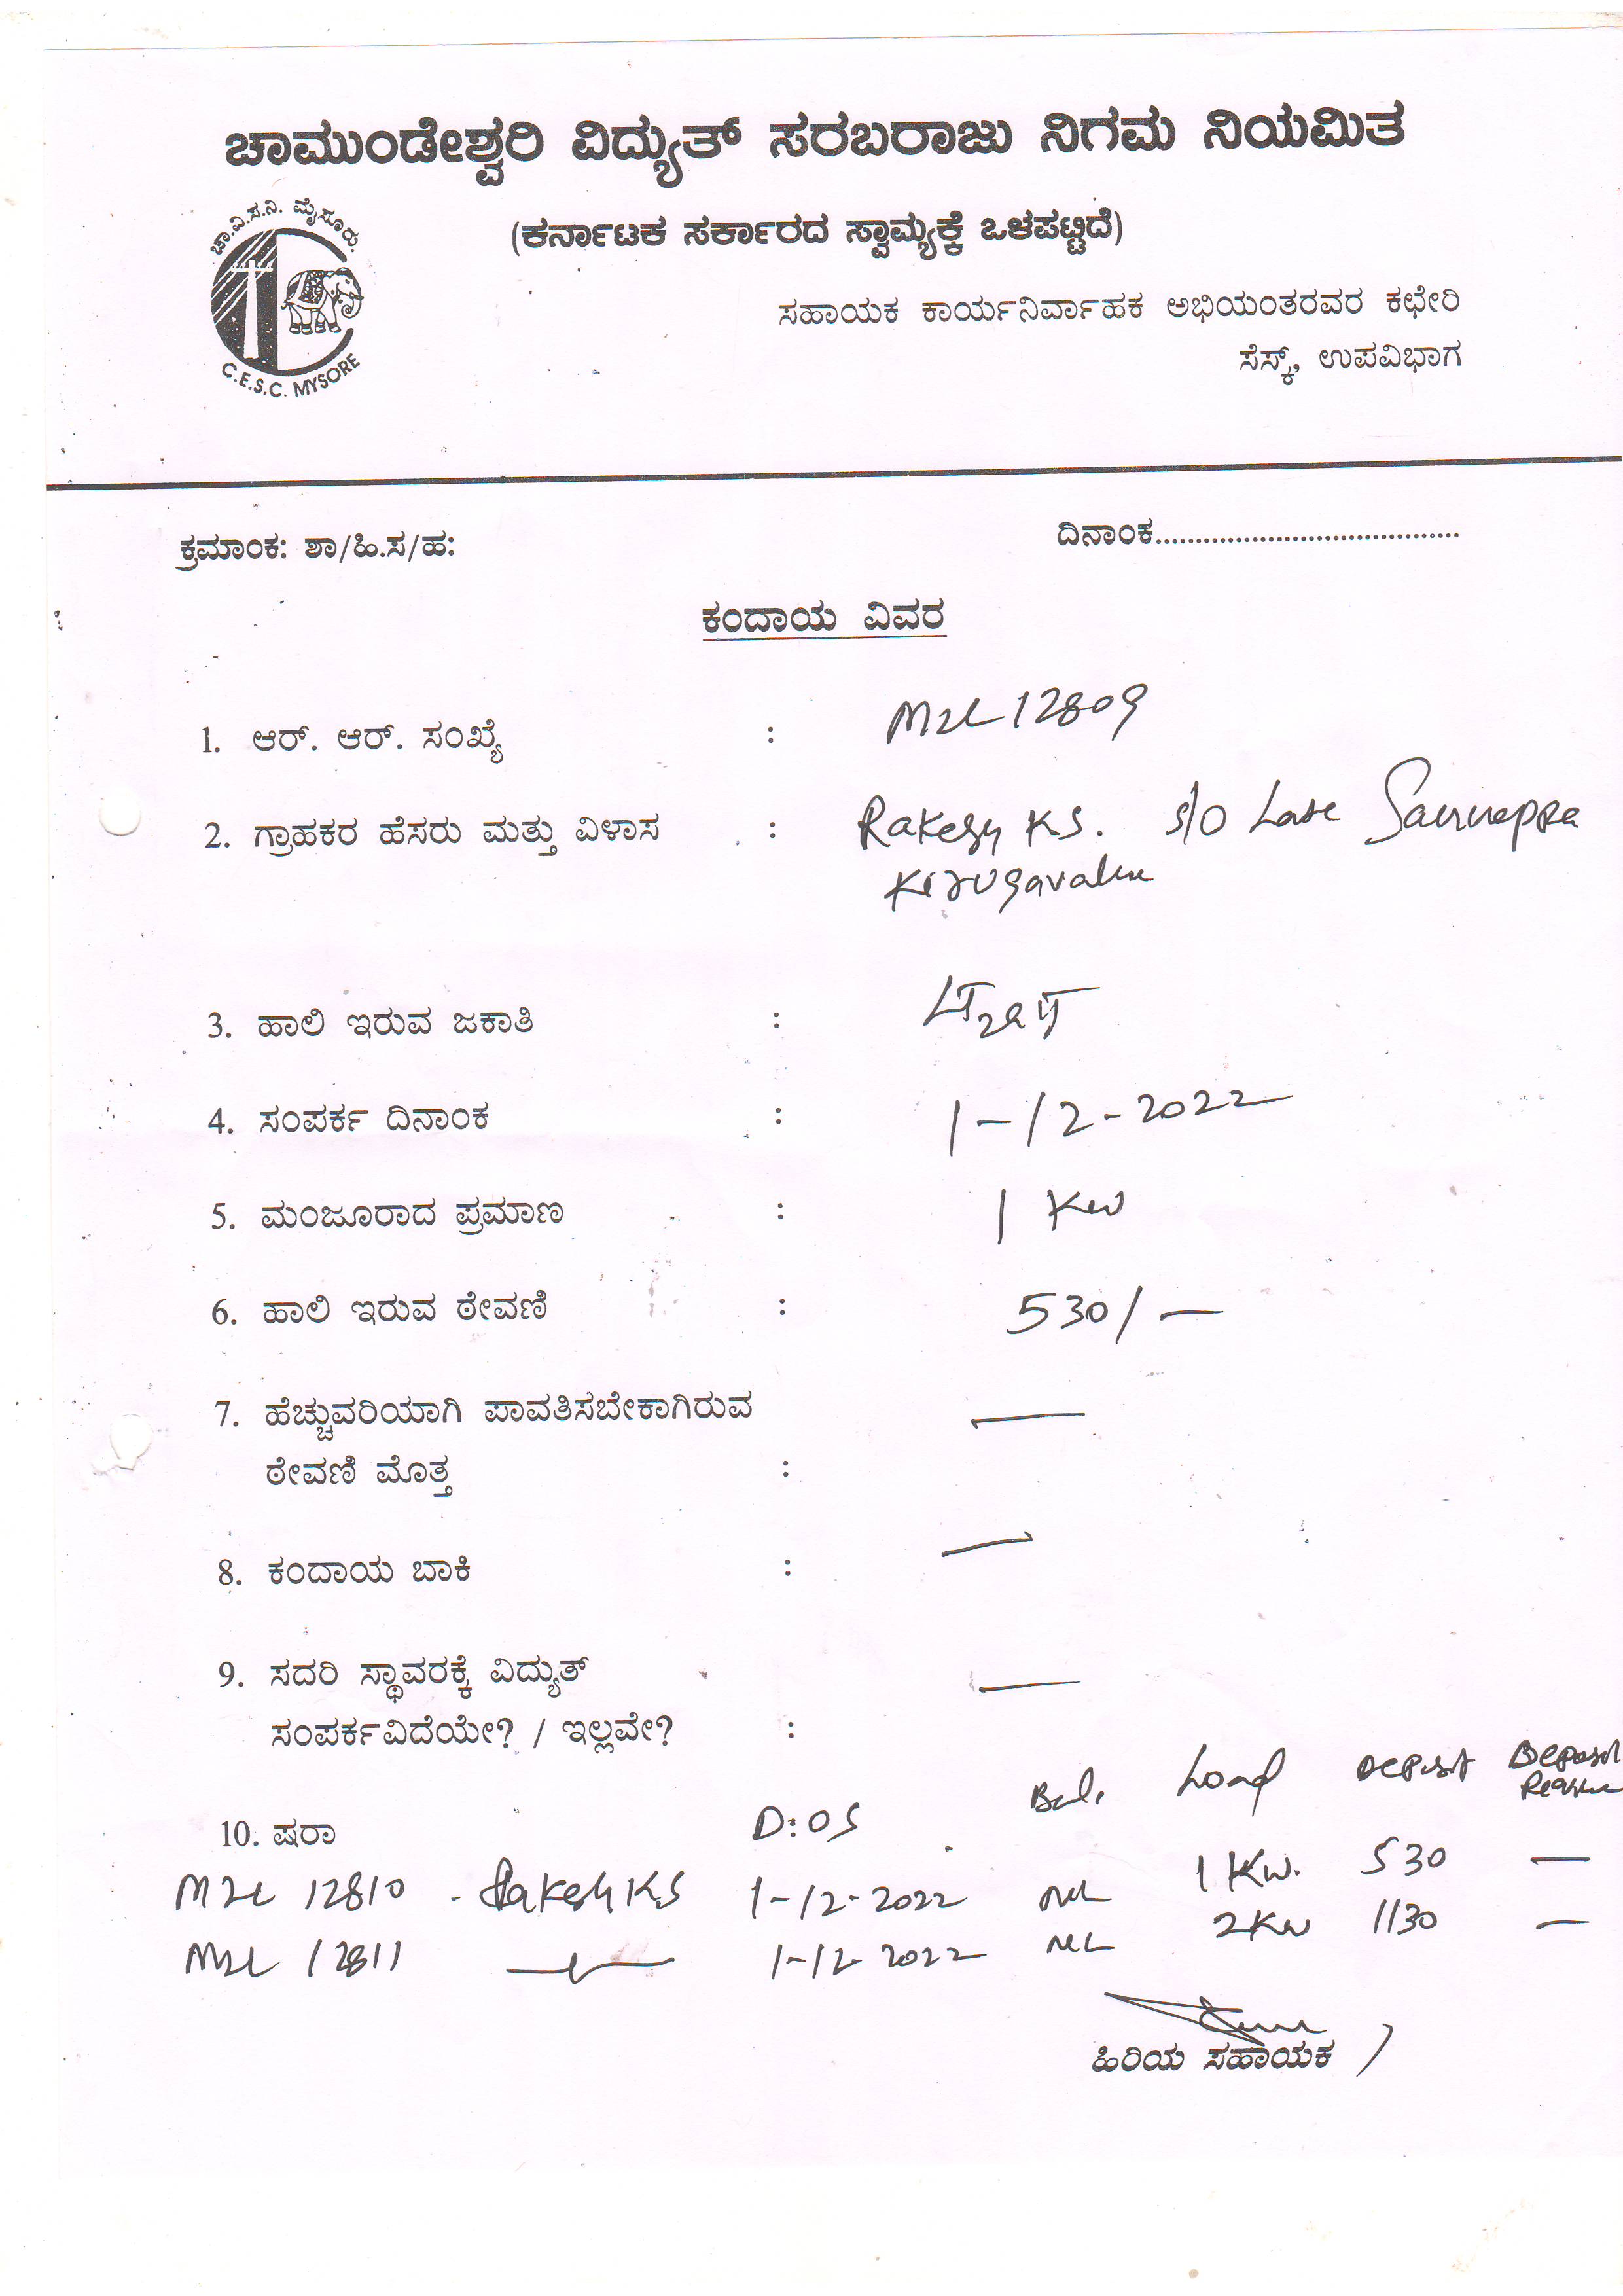 ಚಾಮುಂಡೇಶ್ವರಿ ವಿದ್ಯುತ್ ಸರಬರಾಜು ನಿಗಮ ನಿಯಮಿತ
ಚಾ.ವಿ.ಸ.ನಿ. ಮೈಸೂರು.
C.E.S.C. MYSORE
(ಕರ್ನಾಟಕ ಸರ್ಕಾರದ ಸ್ವಾಮ್ಯಕ್ಕೆ ಒಳಪಟ್ಟಿದೆ)
ಸಹಾಯಕ ಕಾರ್ಯನಿರ್ವಾಹಕ ಅಭಿಯಂತರವರ ಕಛೇರಿ
ಸೆಸ್ಕ್, ಉಪವಿಭಾಗ
ಕ್ರಮಾಂಕ: ಶಾ/ಹಿ.ಸ/ಹ: ದಿನಾಂಕ......................................
ಕಂದಾಯ ವಿವರ
1. ಆರ್. ಆರ್. ಸಂಖ್ಯೆ : MZL 12809
2. ಗ್ರಾಹಕರ ಹೆಸರು ಮತ್ತು ವಿಳಾಸ : Rakesh K.S. S/O Late
Kirugavalu
3. ಹಾಲಿ ಇರುವ ಜಕಾತಿ :
4. ಸಂಪರ್ಕ ದಿನಾಂಕ : 1-12-2022
5. ಮಂಜೂರಾದ ಪ್ರಮಾಣ : 1 KW
6. ಹಾಲಿ ಇರುವ ಠೇವಣಿ : 530/-
7. ಹೆಚ್ಚುವರಿಯಾಗಿ ಪಾವತಿಸಬೇಕಾಗಿರುವ —
ಠೇವಣಿ ಮೊತ್ತ :
8. ಕಂದಾಯ ಬಾಕಿ : —
9. ಸದರಿ ಸ್ಥಾವರಕ್ಕೆ ವಿದ್ಯುತ್ —
ಸಂಪರ್ಕವಿದೆಯೇ? / ಇಲ್ಲವೇ? :
10. ಷರಾ D:OS Bal. Load Deposit Deposit
MZL 12810 - Rakesh KS 1-12-2022 NIL 1 KW. 530 —
MZL 12811 —〃— 1-12-2022 NIL 2KW 1130 —
ಹಿರಿಯ ಸಹಾಯಕ